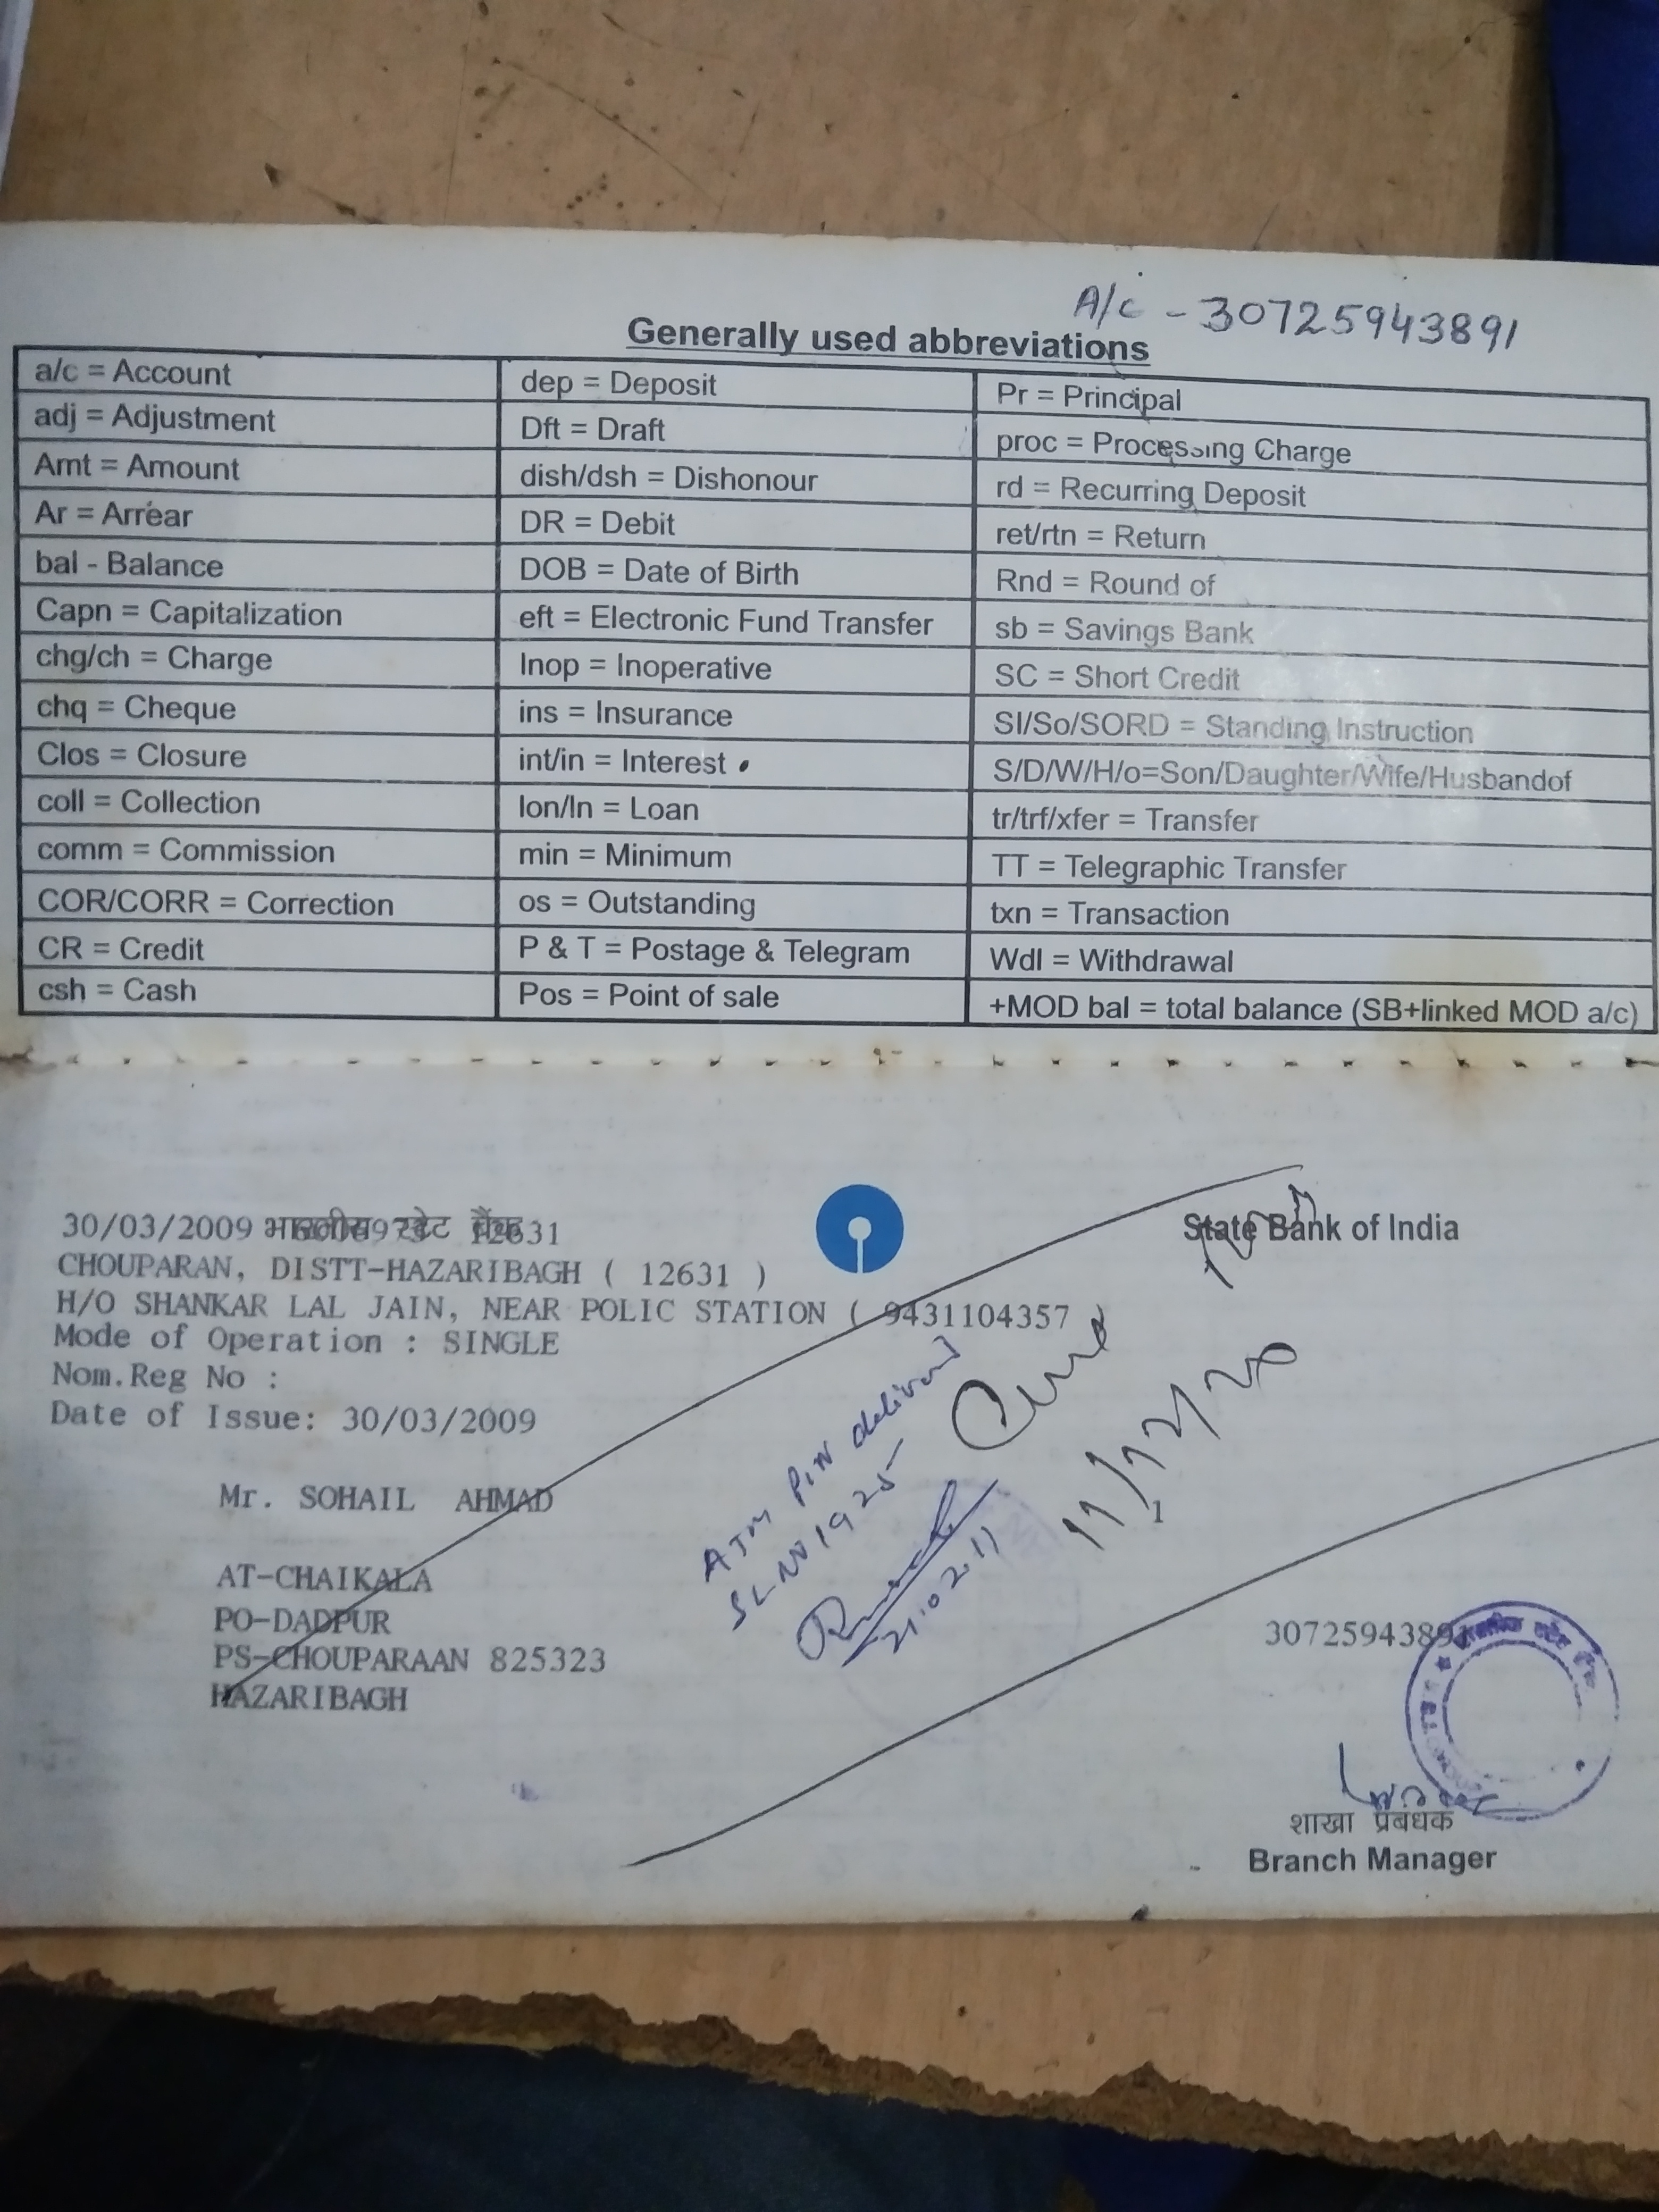 A/c - 30725943891
Generally used abbreviations
a/c = Account
adj = Adjustment
Amt = Amount
Ar = Arrear
bal - Balance
Capn = Capitalization
chg/ch = Charge
chq = Cheque
Clos = Closure
coll = Collection
comm = Commission
COR/CORR = Correction
CR = Credit
csh = Cash
dep = Deposit
Dft = Draft
dish/dsh = Dishonour
DR = Debit
DOB = Date of Birth
eft = Electronic Fund Transfer
Inop = Inoperative
ins = Insurance
int/in = Interest
lon/ln = Loan
min = Minimum
os = Outstanding
P & T = Postage & Telegram
Pos = Point of sale
Pr = Principal
proc = Processing Charge
rd = Recurring Deposit
ret/rtn = Return
Rnd = Round of
sb = Savings Bank
SC = Short Credit
SI/So/SORD = Standing Instruction
S/D/W/H/o=Son/Daughter/Wife/Husbandof
tr/trf/xfer = Transfer
TT = Telegraphic Transfer
txn = Transaction
Wdl = Withdrawal
+MOD bal = total balance (SB+linked MOD a/c)
30/03/2009 भारतीय स्टेट बैंक 12631
State Bank of India
CHOUPARAN, DISTT-HAZARIBAGH ( 12631 )
H/O SHANKAR LAL JAIN, NEAR POLIC STATION ( 9431104357 )
Mode of Operation : SINGLE
Nom.Reg No :
Date of Issue: 30/03/2009
Mr. SOHAIL AHMAD
AT-CHAIKALA
PO-DADPUR
PS-CHOUPARAAN 825323
HAZARIBAGH
ATM PIN delivered
SL NO 1925
21.02.11
11/12/20
1
30725943891
शाखा प्रबंधक
Branch Manager